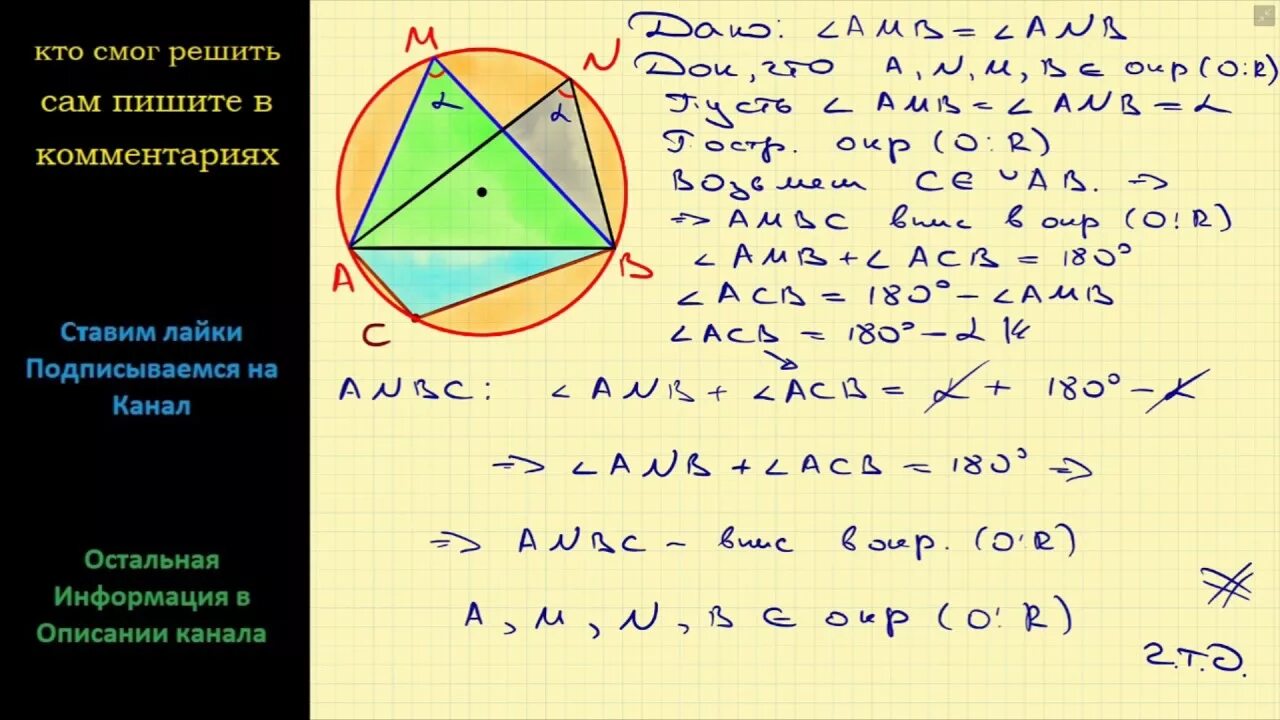 кто смог решить
сам пишите в
комментариях
Ставим лайки
Подписываемся на
Канал
Остальная
Информация в
Описании канала
M
N
α
α
A
B
C
Дано: ∠AMB = ∠ANB
Док, что A, N, M, B ∈ окр (O:R)
Пусть ∠ AMB = ∠ ANB = α
Постр. окр (O:R)
Возьмем C ∈ ◡AB. ⇒
⇒ AMBC впис в окр (O:R)
∠ AMB + ∠ ACB = 180°
∠ ACB = 180° - ∠AMB
∠ACB = 180° - α
ANBC: ∠ ANB + ∠ACB = α + 180° - α
⇒ ∠ ANB + ∠ ACB = 180° ⇒
⇒ ANBC - впис в окр. (O:R)
A, M, N, B ∈ окр (O:R)
Ч.Т.Д.